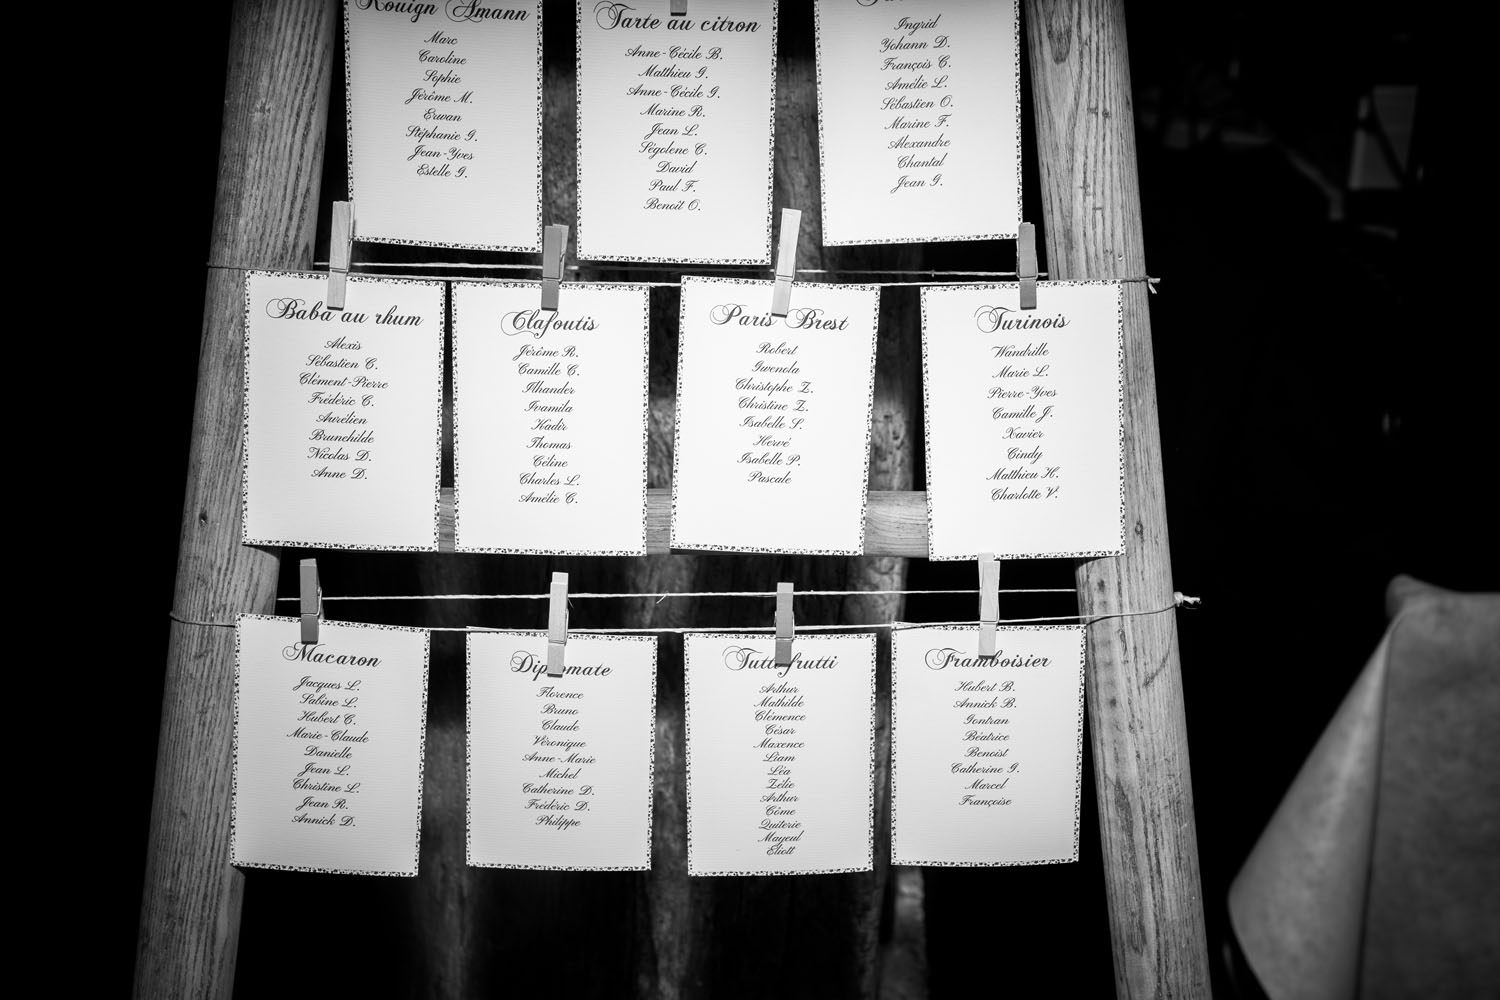 Kouign Amann
Marc
Caroline
Sophie
Jérôme M.
Erwan
Stéphanie G.
Jean-Yves
Estelle G.
Tarte au citron
Anne-Cécile B.
Matthieu G.
Anne-Cécile G.
Marine R.
Jean L.
Ségolene C.
David
Paul F.
Benoît O.
Ingrid
Yohann D.
François C.
Amélie L.
Sébastien O.
Marine F.
Alexandre
Chantal
Jean G.
Baba au rhum
Alexis
Sébastien C.
Clément-Pierre
Frédéric C.
Aurélien
Brunehilde
Nicolas D.
Anne D.
Clafoutis
Jérôme R.
Camille C.
Ilhander
Ivamila
Kadir
Thomas
Céline
Charles L.
Amélie C.
Paris Brest
Robert
Gwenola
Christophe Z.
Christine Z.
Isabelle S.
Hervé
Isabelle P.
Pascale
Turinois
Wandrille
Marie L.
Pierre-Yves
Camille J.
Xavier
Cindy
Matthieu H.
Charlotte V.
Macaron
Jacques L.
Sabine L.
Hubert C.
Marie-Claude
Danielle
Jean L.
Christine L.
Jean R.
Annick D.
Diplomate
Florence
Bruno
Claude
Véronique
Anne-Marie
Michel
Catherine D.
Frédéric D.
Philippe
Tutti frutti
Arthur
Mathilde
Clémence
César
Maxence
Liam
Léa
Zélie
Arthur
Côme
Quiterie
Mayeul
Eliott
Framboisier
Hubert B.
Annick B.
Gontran
Béatrice
Benoist
Catherine G.
Marcel
Françoise